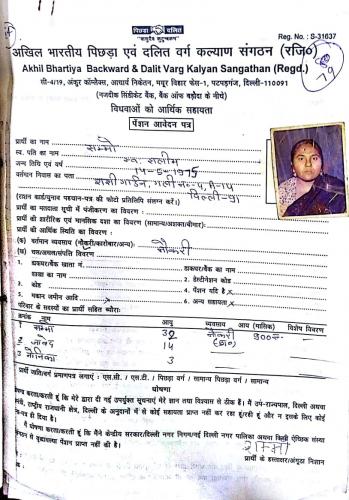 पिछड़ा दलित
"वसुधैव कुटुम्बकम्"
Reg. No. : S-31637
अखिल भारतीय पिछड़ा एवं दलित वर्ग कल्याण संगठन (रजि०)
Akhil Bhartiya Backward & Dalit Varg Kalyan Sangathan (Regd.)
सी-4/19, अंकुर कॉम्प्लैक्स, आचार्य निकेतन, मयूर विहार फेस-1, पटपड़गंज, दिल्ली-110091
(नजदीक सिंडीकेट बैंक, बैंक ऑफ बड़ौदा के नीचे)
79
विधवाओं को आर्थिक सहायता
पेंशन आवेदन पत्र
प्रार्थी का नाम
स्व. पति का नाम स्व. सलीम
जन्म तिथि एवं वर्ष 14-5-1975
वर्तमान निवास का पता शशी गार्डन, गली नं-4, A-14
दिल्ली-91
(राशन कार्ड/चुनाव पहचान-पत्र की फोटो प्रतिलिपि संलग्न करें)
प्रार्थी का मतदाता सूची में पंजीकरण का विवरण :
प्रार्थी की शारीरिक एवं मानसिक दशा का विवरण (सामान्य/अशक्त/बीमार):
प्रार्थी की आर्थिक स्थिति का विवरण :
(क) वर्तमान व्यवसाय (नौकरी/कारोबार/अन्य): नौकरी
(ख) चल/अचल/संपत्ति विवरण
1. डाकघर/बैंक खाता नं. डाकघर/बैंक का नाम
शाखा का नाम 2. डेस्टीनेशन कोड
3. कोड 4. पेंशन यदि है x
5. मकान जमीन आदि 6. अन्य सहायता x
परिवार के सदस्यों का प्रार्थी सहित ब्यौरा:
क्रमांक नाम आयु व्यवसाय आय (मासिक) विशेष विवरण
1 32 नौकरी
2 जावेद 14
3 3
प्रार्थी जाति/वर्ग प्रमाणपत्र लगाएं : एस.सी. / एस.टी. / पिछड़ा वर्ग / सामान्य पिछड़ा वर्ग / सामान्य
घोषणा
घोषणा करता/करती हूं कि मेरे द्वारा दी गई उपर्युक्त सूचनाएं मेरे ज्ञान तथा विश्वास से ठीक हैं। मैं उप-राज्यपाल, दिल्ली अथवा
मंत्री, राष्ट्रीय राजधानी क्षेत्र, दिल्ली के अनुदानों में से कोई सहायता प्राप्त नहीं कर रहा हूं/रही हूं और न इसके लिए कोई
ही दिया है।
मैं घोषणा करता/करती हूं कि मैंने केन्द्रीय सरकार/दिल्ली नगर निगम/नई दिल्ली नगर पालिका अथवा किसी ऐच्छिक संस्था
से वृद्धावस्था पेंशन प्राप्त नहीं की है।
प्रार्थी के हस्ताक्षर/अंगूठा निशान